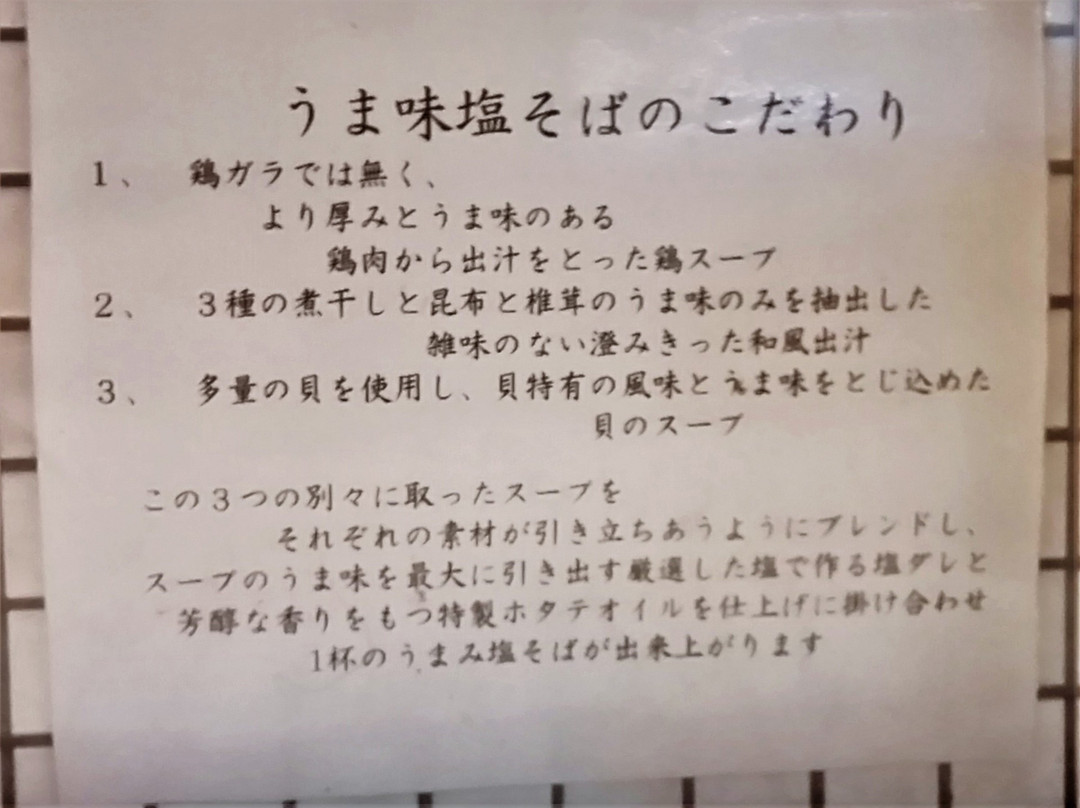 うま味塩そばのこだわり
1、 鶏ガラでは無く、
より厚みとうま味のある
鶏肉から出汁をとった鶏スープ
2、 3種の煮干しと昆布と椎茸のうま味のみを抽出した
雑味のない澄みきった和風出汁
3、 多量の貝を使用し、貝特有の風味とうま味をとじ込めた
貝のスープ
この3つの別々に取ったスープを
それぞれの素材が引き立ちあうようにブレンドし、
スープのうま味を最大に引き出す厳選した塩で作る塩ダレと
芳醇な香りをもつ特製ホタテオイルを仕上げに掛け合わせ
1杯のうまみ塩そばが出来上がります